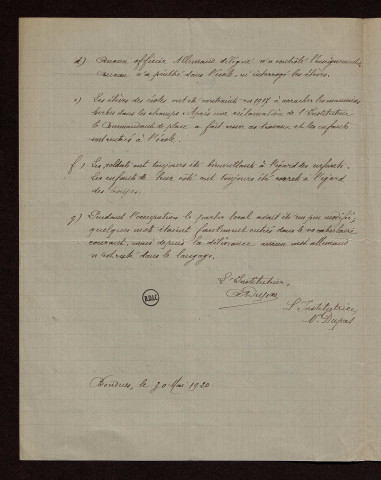 d) Aucun officier Allemand délégué n'a contrôlé l'enseignement
Aucun n'a pénétré dans l'école, ni interrogé les élèves.
e) Les élèves des écoles ont été contraints en 1917 à arracher les mauvaises
herbes dans les champs. Après une réclamation de l'Instituteur
le Commandant de place a fait cesser ces travaux et les enfants
sont rentrés à l'école.
f) Les soldats ont toujours été bienveillants à l'égard des enfants.
Les enfants de leur côté ont toujours été corrects à l'égard
des troupes.
g) Pendant l'occupation le parler local avait été un peu modifié,
quelques mots étaient facilement entrés dans le vocabulaire
courant, mais depuis la délivrance aucun mot allemand
n'existe dans le langage.
L'Instituteur,
Dupas
L'Institutrice,
V. Dupas
BDIC
le 20 Mai 1920